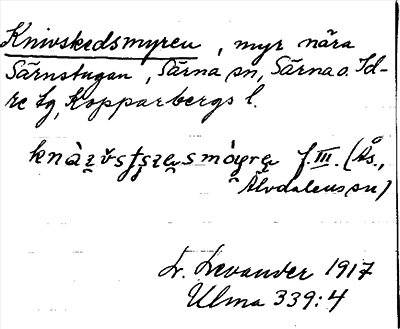 Knivskedsmyren, myr nära
Särnstugan, Särna sn, Särna o. Id-
re tg, Kopparbergs l.
f. III. (Ås,
Älvdalens sn)
L. Levander 1917
Ulma 339:4